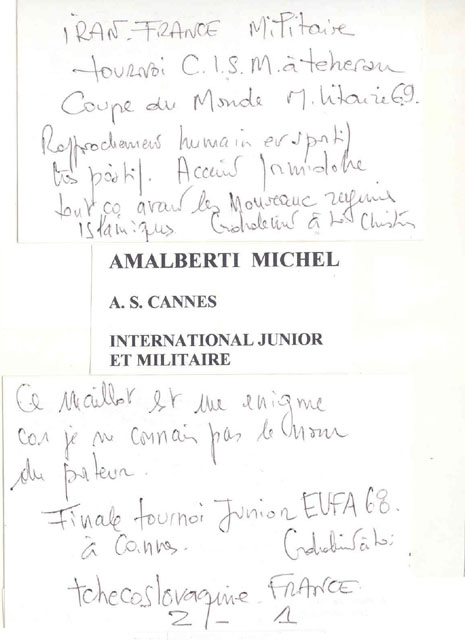 IRAN-FRANCE Militaire
tournoi C.I.S.M. à teheran
Coupe du Monde Militaire 69.
Rapprochement humain et sportif
très positif. Accueil formidable
tout ça avant les nouveaux regimes
Islamiques Cordialement à toi Christian
AMALBERTI MICHEL
A. S. CANNES
INTERNATIONAL JUNIOR
ET MILITAIRE
Ce maillot est une enigme
car je ne connais pas le nom
du porteur.
Finale tournoi Junior EUFA 68.
à Cannes. Cordialement à toi
tchecoslovaquie-FRANCE
2 - 1